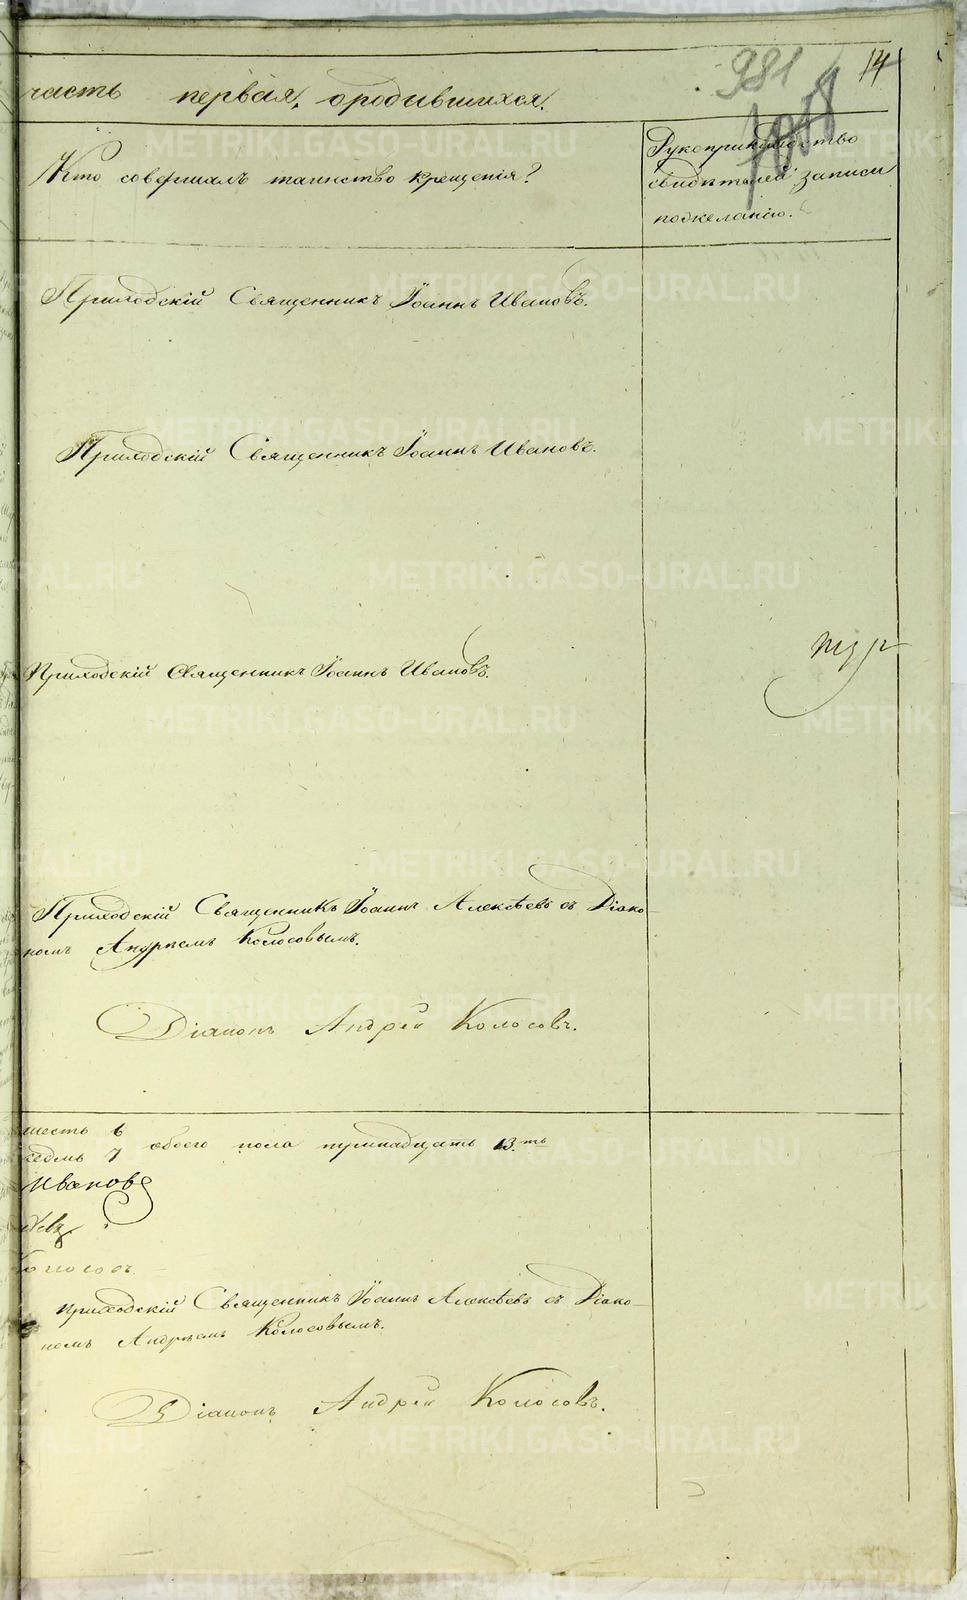 981
14
часть первая, ородившихся.
Кто совершалъ таинство крещенія?
Рукоприкладство
свидѣтелей записи
пожеланію.
Приходскій Священникъ Іоаннъ Ивановъ.
Приходскій Священникъ Іоаннъ Ивановъ.
Приходскій Священникъ Іоаннъ Ивановъ.
Приходскій Священникъ Іоаннъ Алексѣевъ съ Діако-
номъ Андреемъ Колосовымъ.
Діаконъ Андрей Колосовъ.
шесть 6
седмь 7 обоего пола тринадцать 13.ть
Ивановъ
Колосовъ.
приходскій Священникъ Іоаннъ Алексѣевъ съ Діако-
номъ Андреемъ Колосовымъ.
Діаконъ Андрей Колосовъ.
METRIKI.GASO-URAL.RU